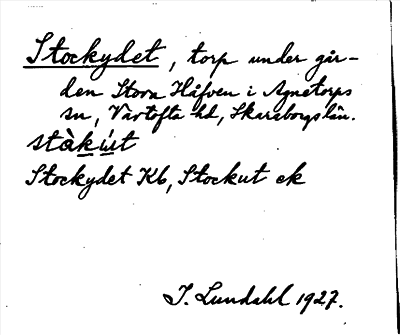 Stockydet, torp under går-
den Stora Håfven i Agnetorps
sn, Vartofta hd, Skaraborgs län.
ståkut
Stockydet Kb, Stockut ek
I. Lundahl 1927.